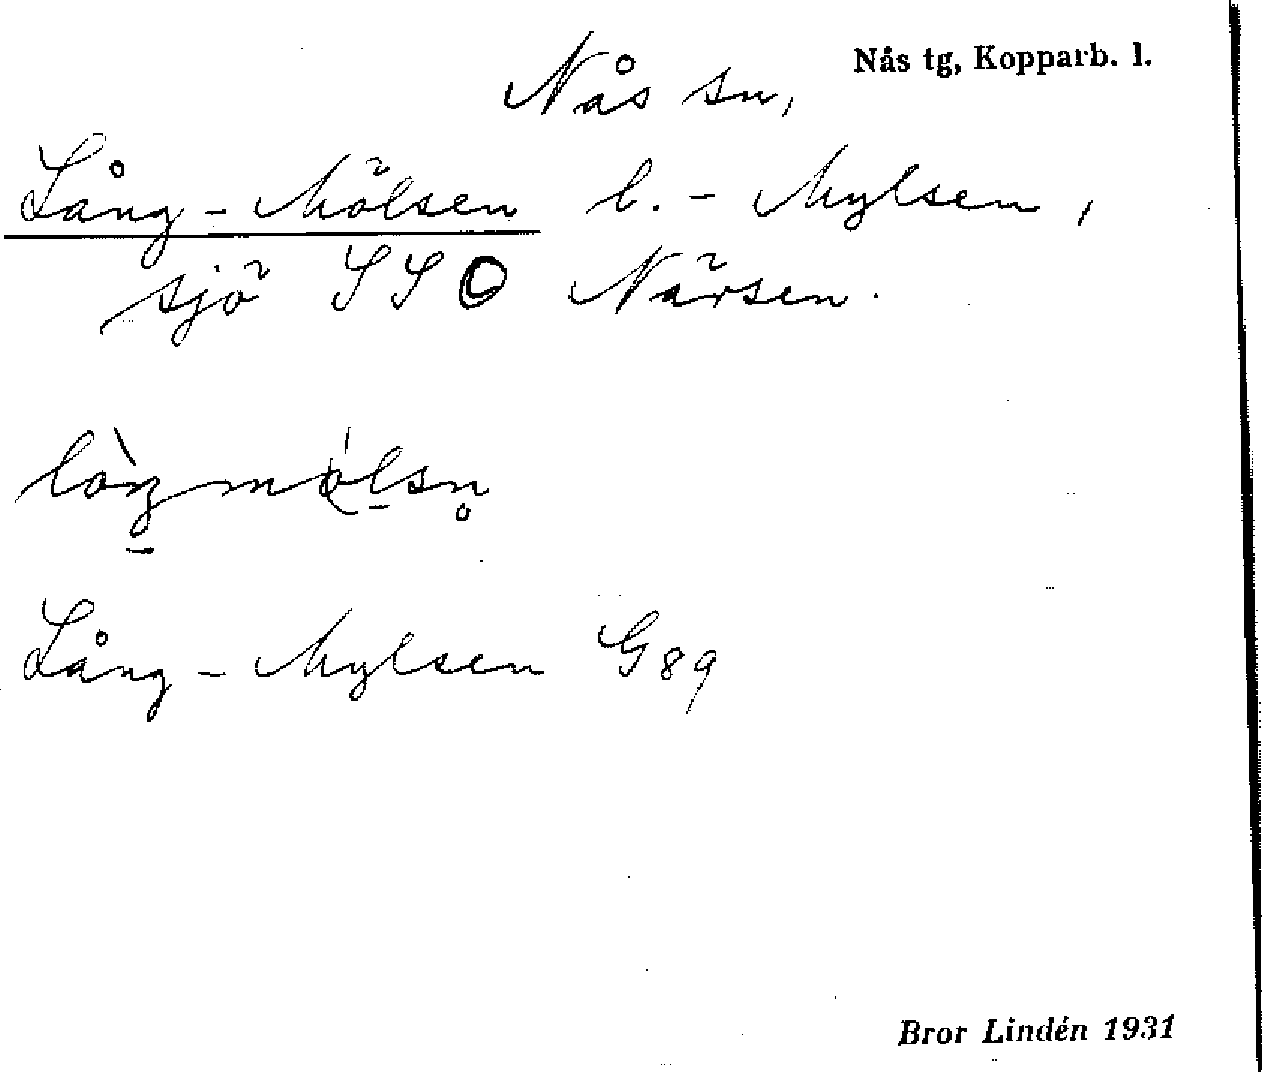 Nås sn,
Nås tg, Kopparb. l.
Lång-Mölsen l. - Mylsen,
sjö SSO Närsen.
Lång-Mylsen G89
Bror Lindén 1931